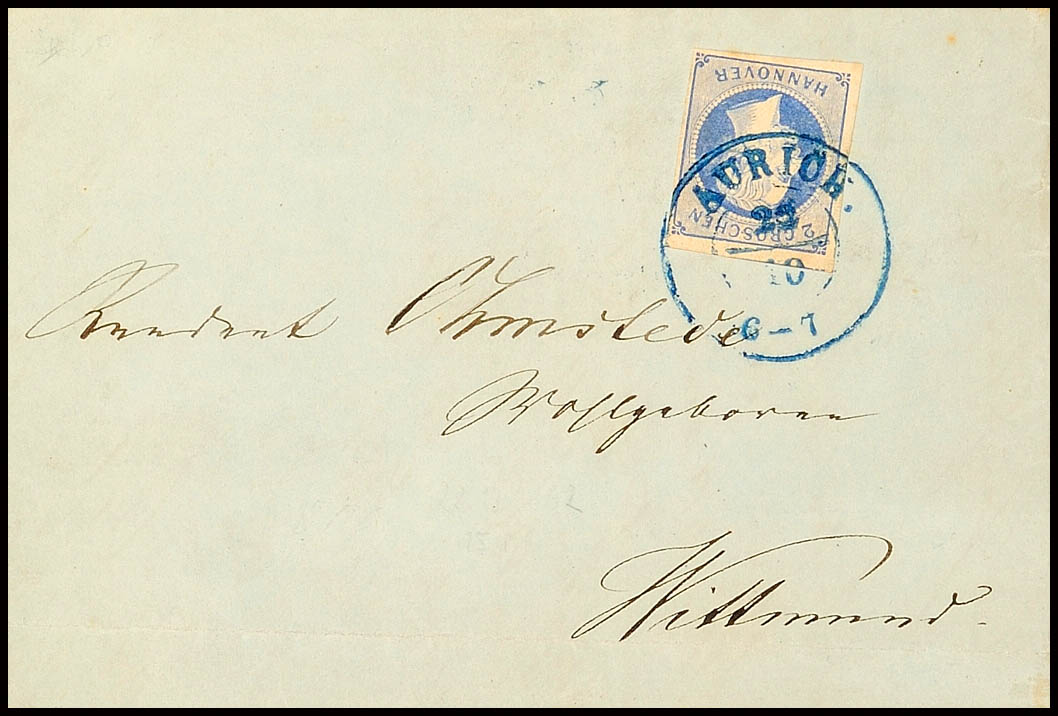 HANNOVER
2 GROSCHEN
AURICH.
22
10
6-7
Rendent Ohmstede
Wohlgeboren
Wittmund.